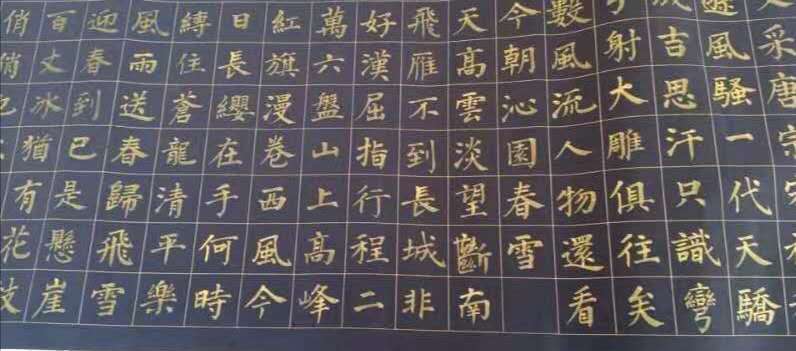 采唐宗宋
遜風騷一代天驕
成吉思汗只識彎
弓射大雕俱往矣
數風流人物還看
今朝沁園春雪
天高雲淡望斷南
飛雁不到長城非
好漢屈指行程二
萬六盤山上高峰
紅旗漫卷西風今
日長纓在手何時
縛住蒼龍清平樂
風雨送春歸飛雪
迎春到已是懸崖
百丈冰猶有花枝
俏俏也